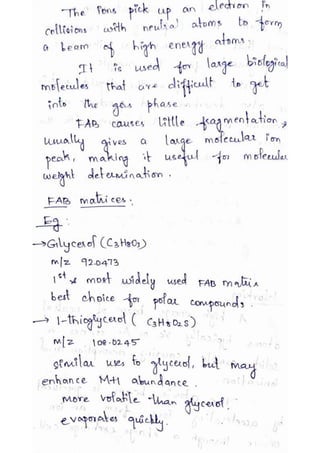 The ions pick up an electron in
collisions with neutral atoms to form
a beam of high energy atoms.
It is used for large biological
molecules that are difficult to get
into the gas phase.
FAB causes little fragmentation,
usually gives a large molecular ion
peak, making it useful for molecular
weight determination.
FAB matrices:
Eg:
→Glycerol (C3H8O3)
m/z 92.0473
1st & most widely used FAB matrix
best choice for polar compounds.
→ 1-thioglycerol ( C3H8O2S)
m/z 108.0245
similar uses to glycerol, but may
enhance M+1 abundance.
more volatile than glycerol.
evaporates quickly.